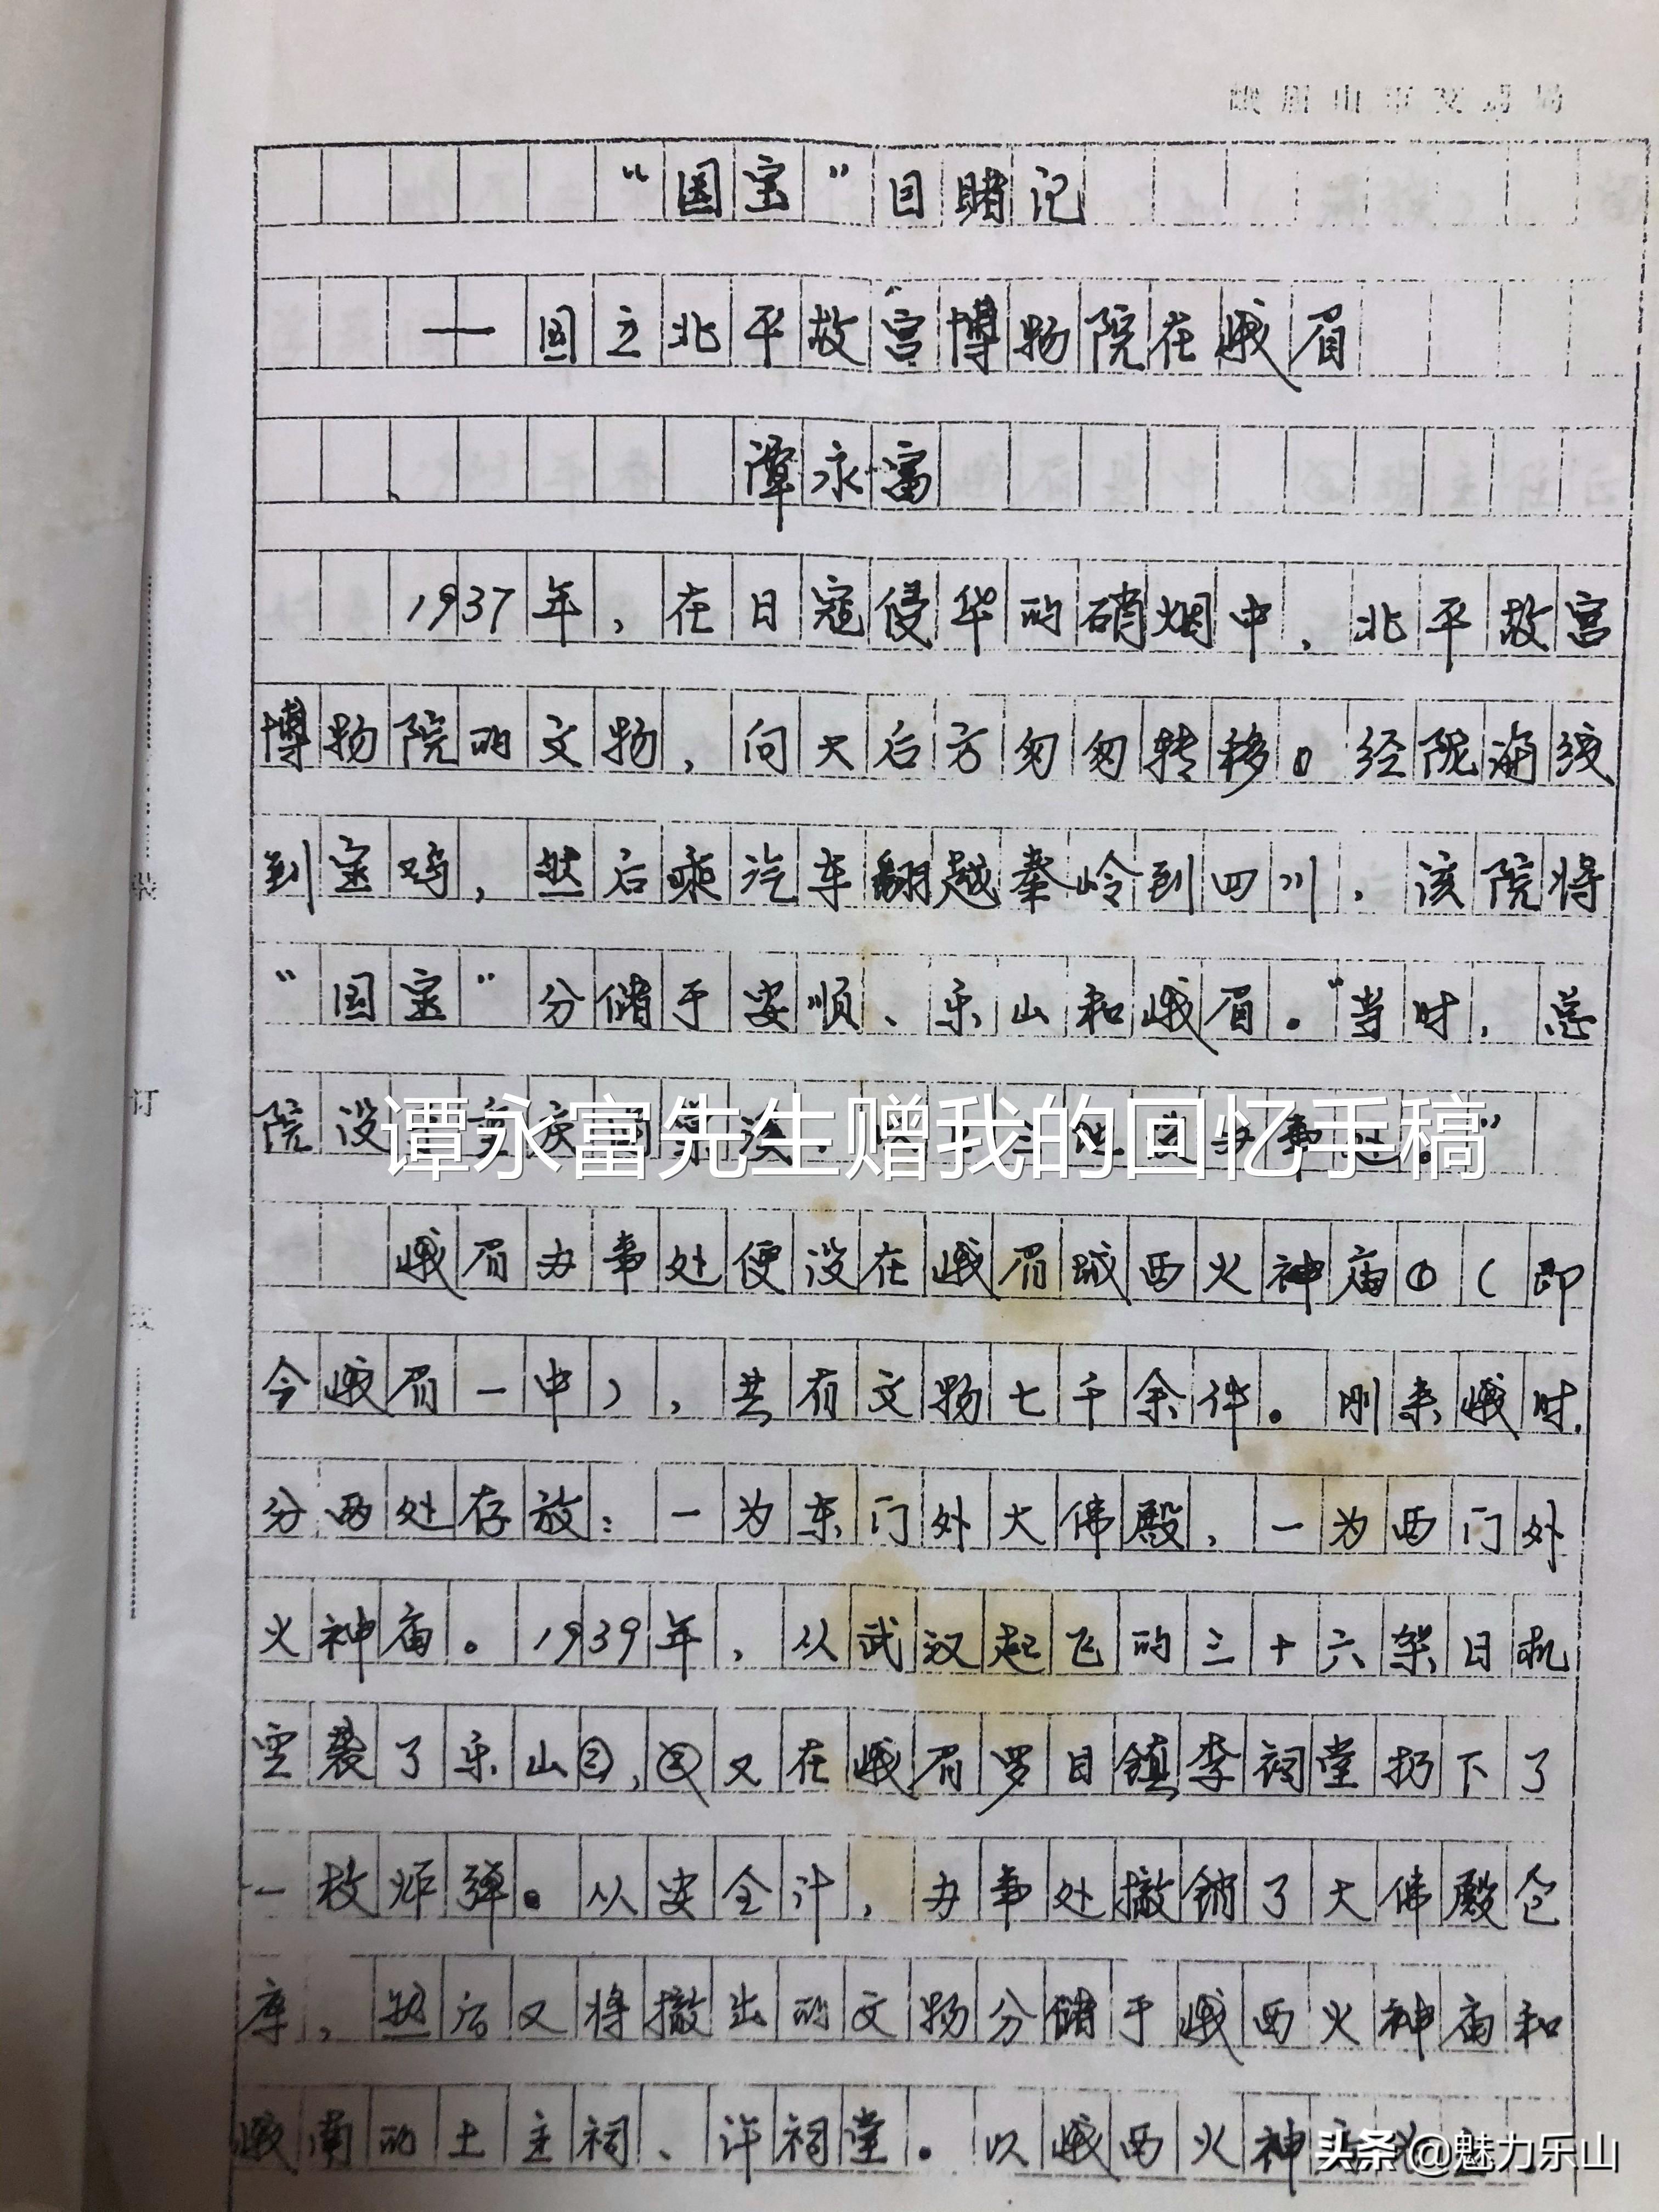 峨眉山市文
“国宝”目睹记
—国立北平故宫博物院在峨眉
谭永富
1937年，在日寇侵华的硝烟中，北平故宫
博物院的文物，向大后方匆匆转移。经陇海线
到宝鸡，然后乘汽车翻越秦岭到四川，该院将
“国宝”分储于安顺、乐山和峨眉。“当时，总
院设 办事处。”
谭永富先生赠我的回忆手稿
峨眉办事处便设在峨眉城西火神庙①（即
今峨眉一中），共有文物七千余件。刚来峨时，
分两处存放：一为东门外大佛殿，一为西门外
火神庙。1939年，从武汉起飞的三十六架日机
空袭了乐山②，又在峨眉罗目镇李祠堂扔下了
一枚炸弹。从安全计，办事处撤销了大佛殿仓
库，然后又将撤出的文物分储于峨西火神庙和
峨南的土主祠、许祠堂。以峨西火神
装
订
头条@魅力乐山